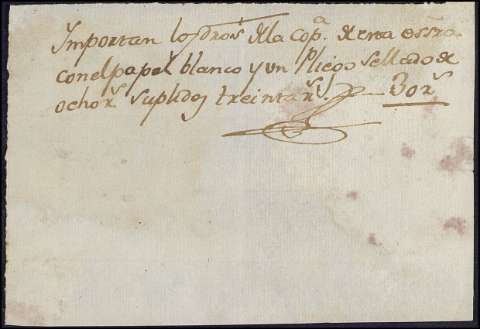 Importan los dros de la cop.ª de esta essra
con el papel blanco y un Pliego sellado de
ocho rs suplidos treinta rs. 30 rs